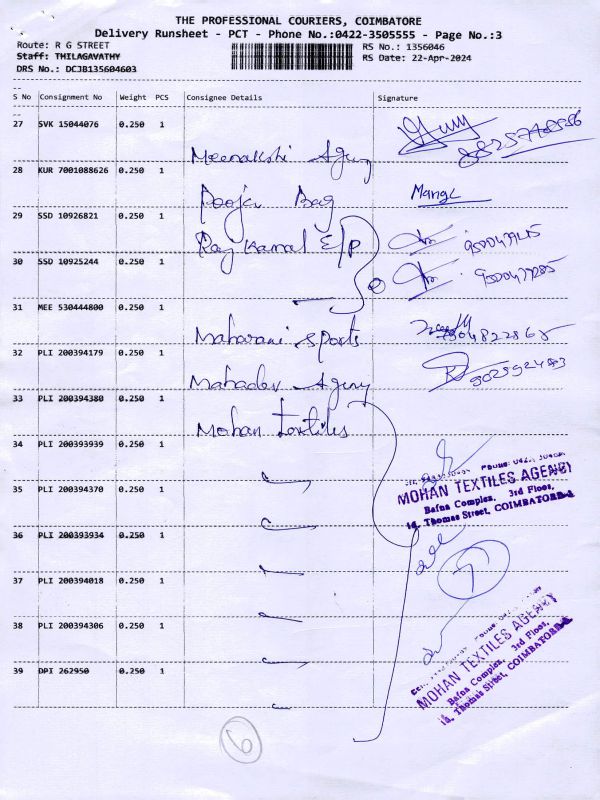 THE PROFESSIONAL COURIERS, COIMBATORE
Delivery Runsheet - PCT - Phone No.:0422-3505555 - Page No.:3
Route: R G STREET
RS No.: 1356046
Staff: THILAGAVATHY
RS Date: 22-Apr-2024
DRS No.: DCJB135604603
S No Consignment No Weight PCS Consignee Details Signature
27 SVK 15044076 0.250 1
Meenakshi Agency
28 KUR 7001088626 0.250 1
Pooja Bag
29 SSD 10926821 0.250 1
Raj Kamal E/P
30 SSD 10925244 0.250 1
31 MEE 530444800 0.250 1
Maharani Sports
32 PLI 200394179 0.250 1
Mahadev Agency
33 PLI 200394380 0.250 1
Mohan Textiles
34 PLI 200393939 0.250 1
35 PLI 200394370 0.250 1
MOHAN TEXTILES AGENCY
Bafna Complex, 3rd Floor,
Thomas Street, COIMBATORE-1
36 PLI 200393934 0.250 1
37 PLI 200394018 0.250 1
38 PLI 200394306 0.250 1
MOHAN TEXTILES AGENCY
Bafna Complex, 3rd Floor,
Thomas Street, COIMBATORE-1
39 DPI 262950 0.250 1
6